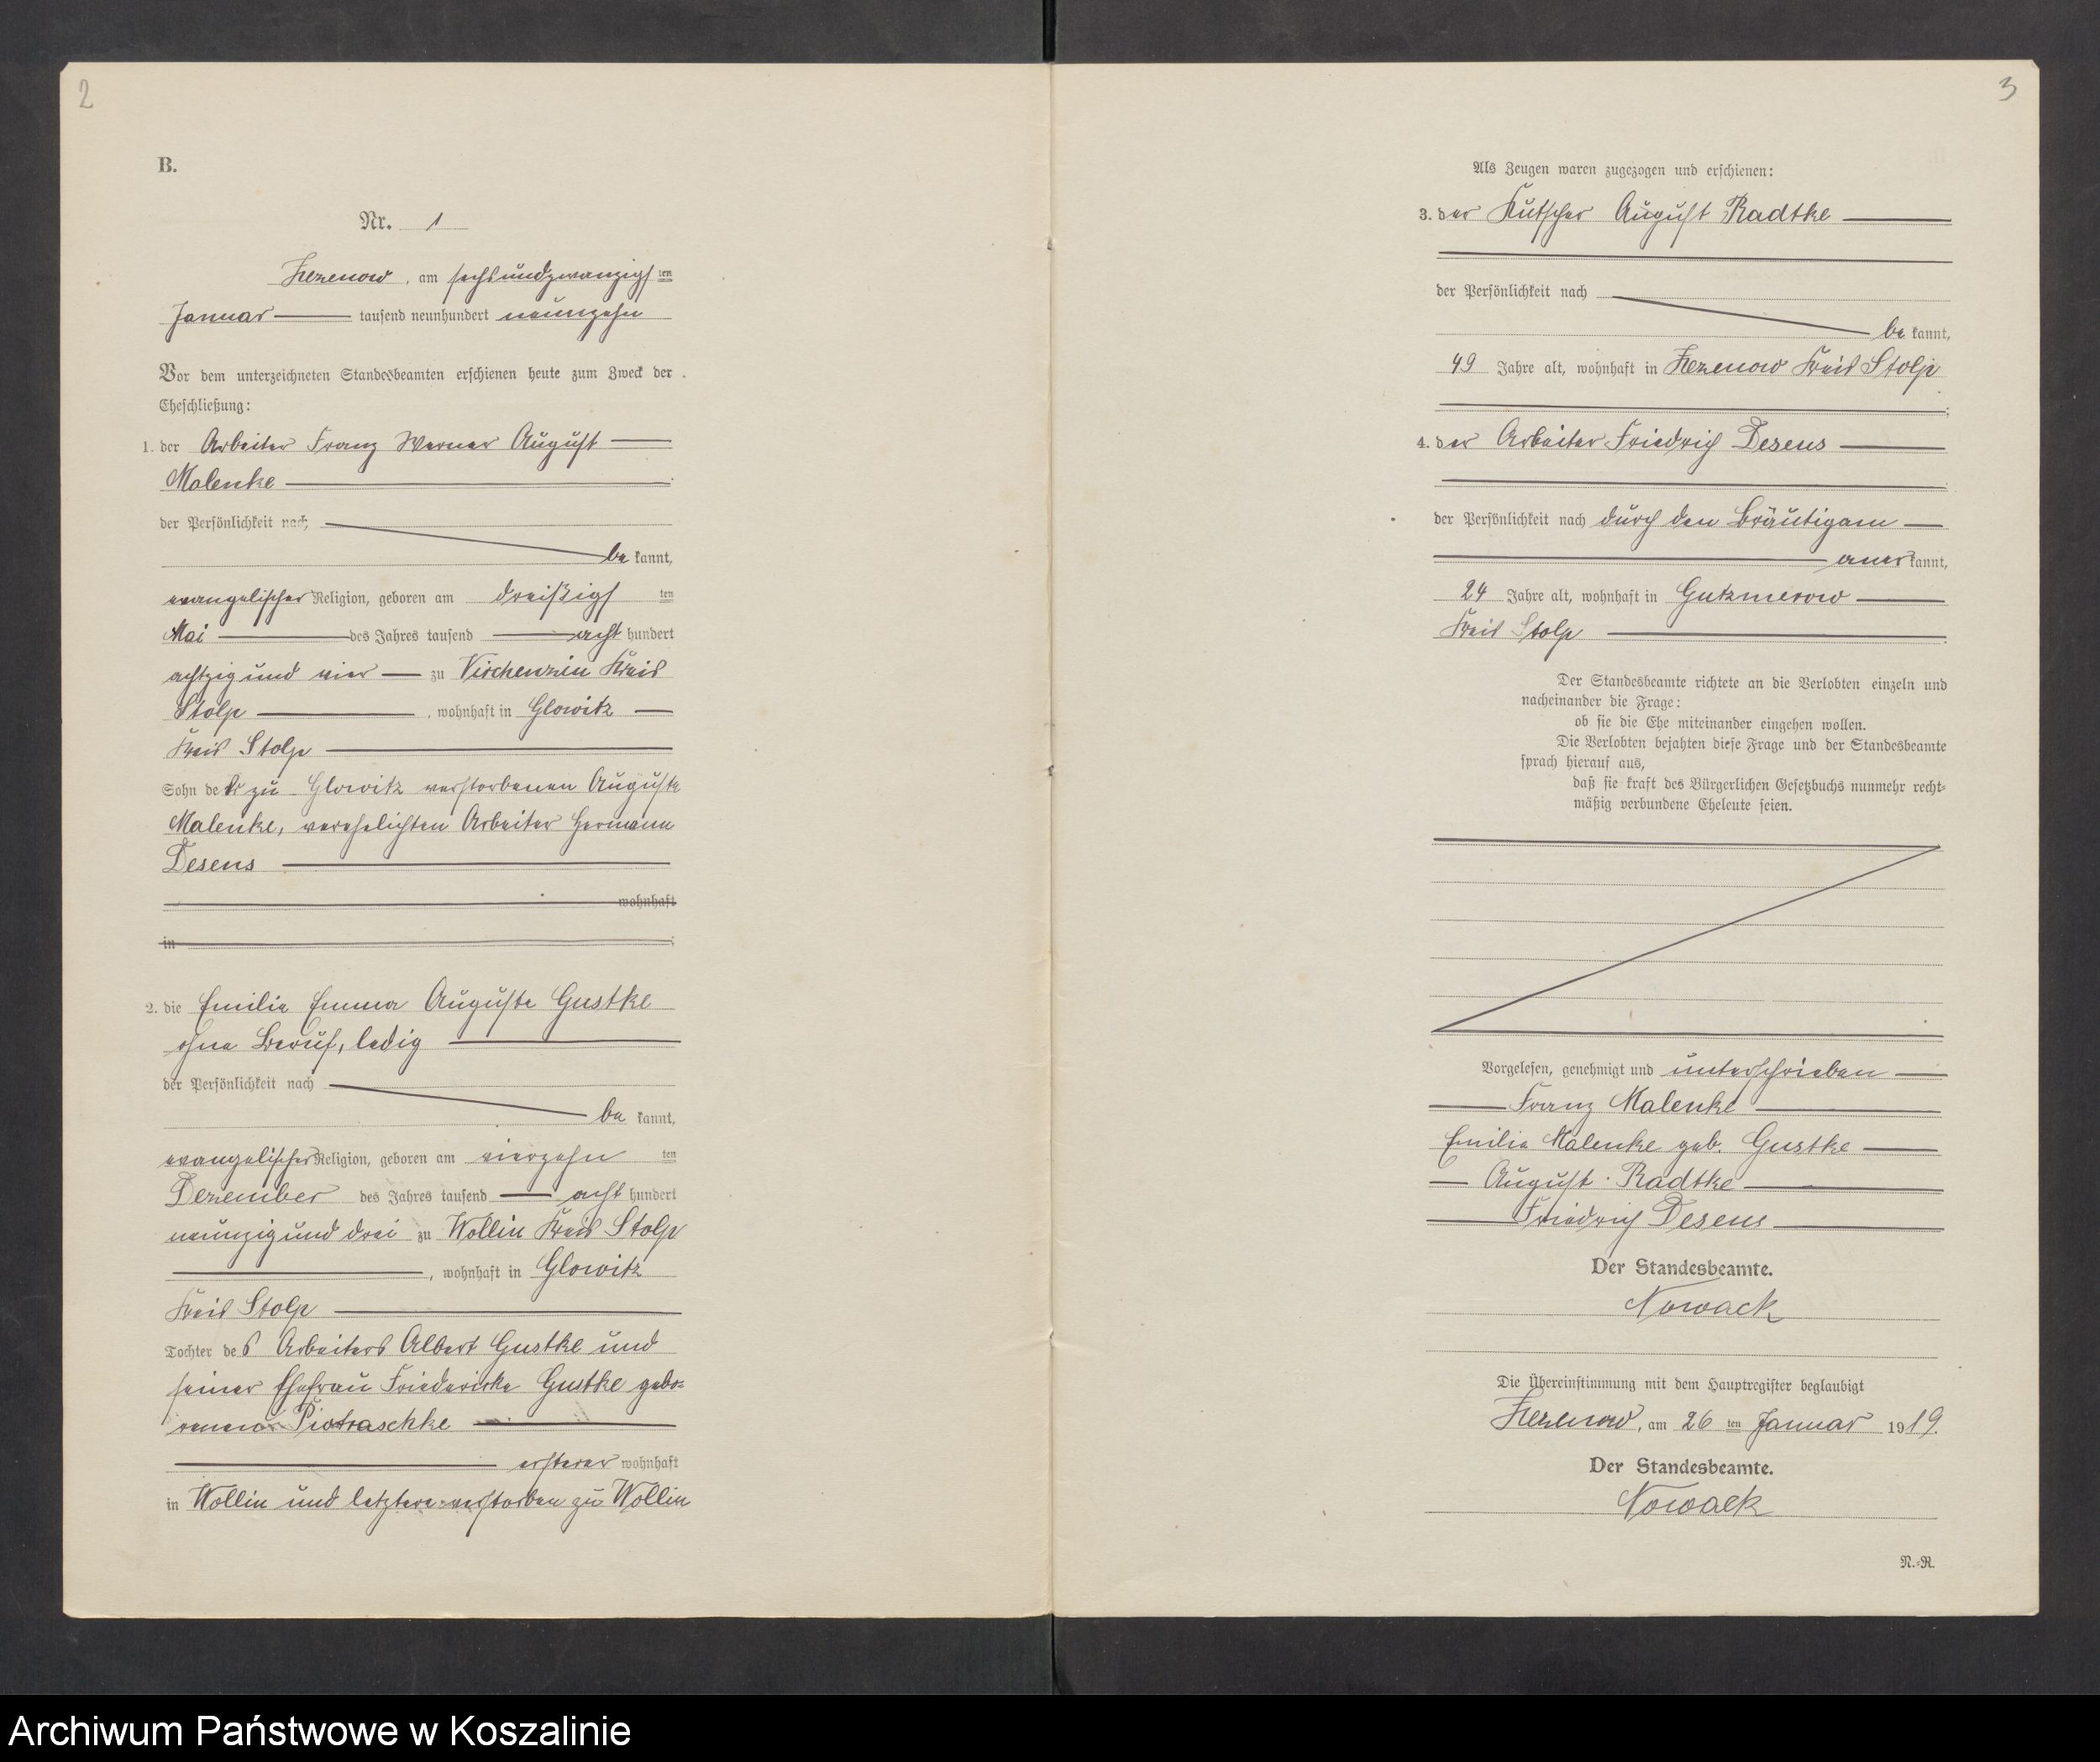 2
B.
Nr. 1
Zezenow, am sechsundzwanzigsten
Januar tausend neunhundert neunzehn
Vor dem unterzeichneten Standesbeamten erschienen heute zum Zweck der
Eheschließung:
1. der Arbeiter Franz Werner August
Malenke
der Persönlichkeit nach
be kannt,
evangelischer Religion, geboren am dreißigsten
Mai des Jahres tausend acht hundert
achtzig und vier zu Vixchenzin Kreis
Stolp, wohnhaft in Glowitz
Kreis Stolp
Sohn der zu Glowitz verstorbenen Auguste
Malenke, verehelichten Arbeiter Hermann
Desens
wohnhaft
in
2. die Emilie Emma Auguste Gustke
ohne Beruf, ledig
der Persönlichkeit nach
be kannt,
evangelischer Religion, geboren am vierzehn ten
Dezember des Jahres tausend acht hundert
neunzig und drei zu Wollin Kreis Stolp
, wohnhaft in Glowitz
Kreis Stolp
Tochter des Arbeiters Albert Gustke und
seiner Ehefrau Friederieke Gustke gebo=
renen Piotraschke
ersterer wohnhaft
in Wollin und letztere verstorben zu Wollin
3
Als Zeugen waren zugezogen und erschienen:
3. der Kutscher August Radtke
der Persönlichkeit nach
be kannt,
49 Jahre alt, wohnhaft in Zezenow Kreis Stolp
4. der Arbeiter Friedrich Desens
der Persönlichkeit nach durch den Bräutigam
aner kannt,
24 Jahre alt, wohnhaft in Gutzmerow
Kreis Stolp
Der Standesbeamte richtete an die Verlobten einzeln und
nacheinander die Frage:
ob sie die Ehe miteinander eingehen wollen.
Die Verlobten bejahten diese Frage und der Standesbeamte
sprach hierauf aus,
daß sie kraft des Bürgerlichen Gesetzbuchs nunmehr recht=
mäßig verbundene Eheleute seien.
Vorgelesen, genehmigt und unterschrieben
Franz Malenke
Emilie Malenke geb. Gustke
August Radtke
Friedrich Desens
Der Standesbeamte.
Nowack
Die Übereinstimmung mit dem Hauptregister beglaubigt
Zezenow, am 26 ten Januar 1919.
Der Standesbeamte.
Nowack
N.=R.
Archiwum Państwowe w Koszalinie